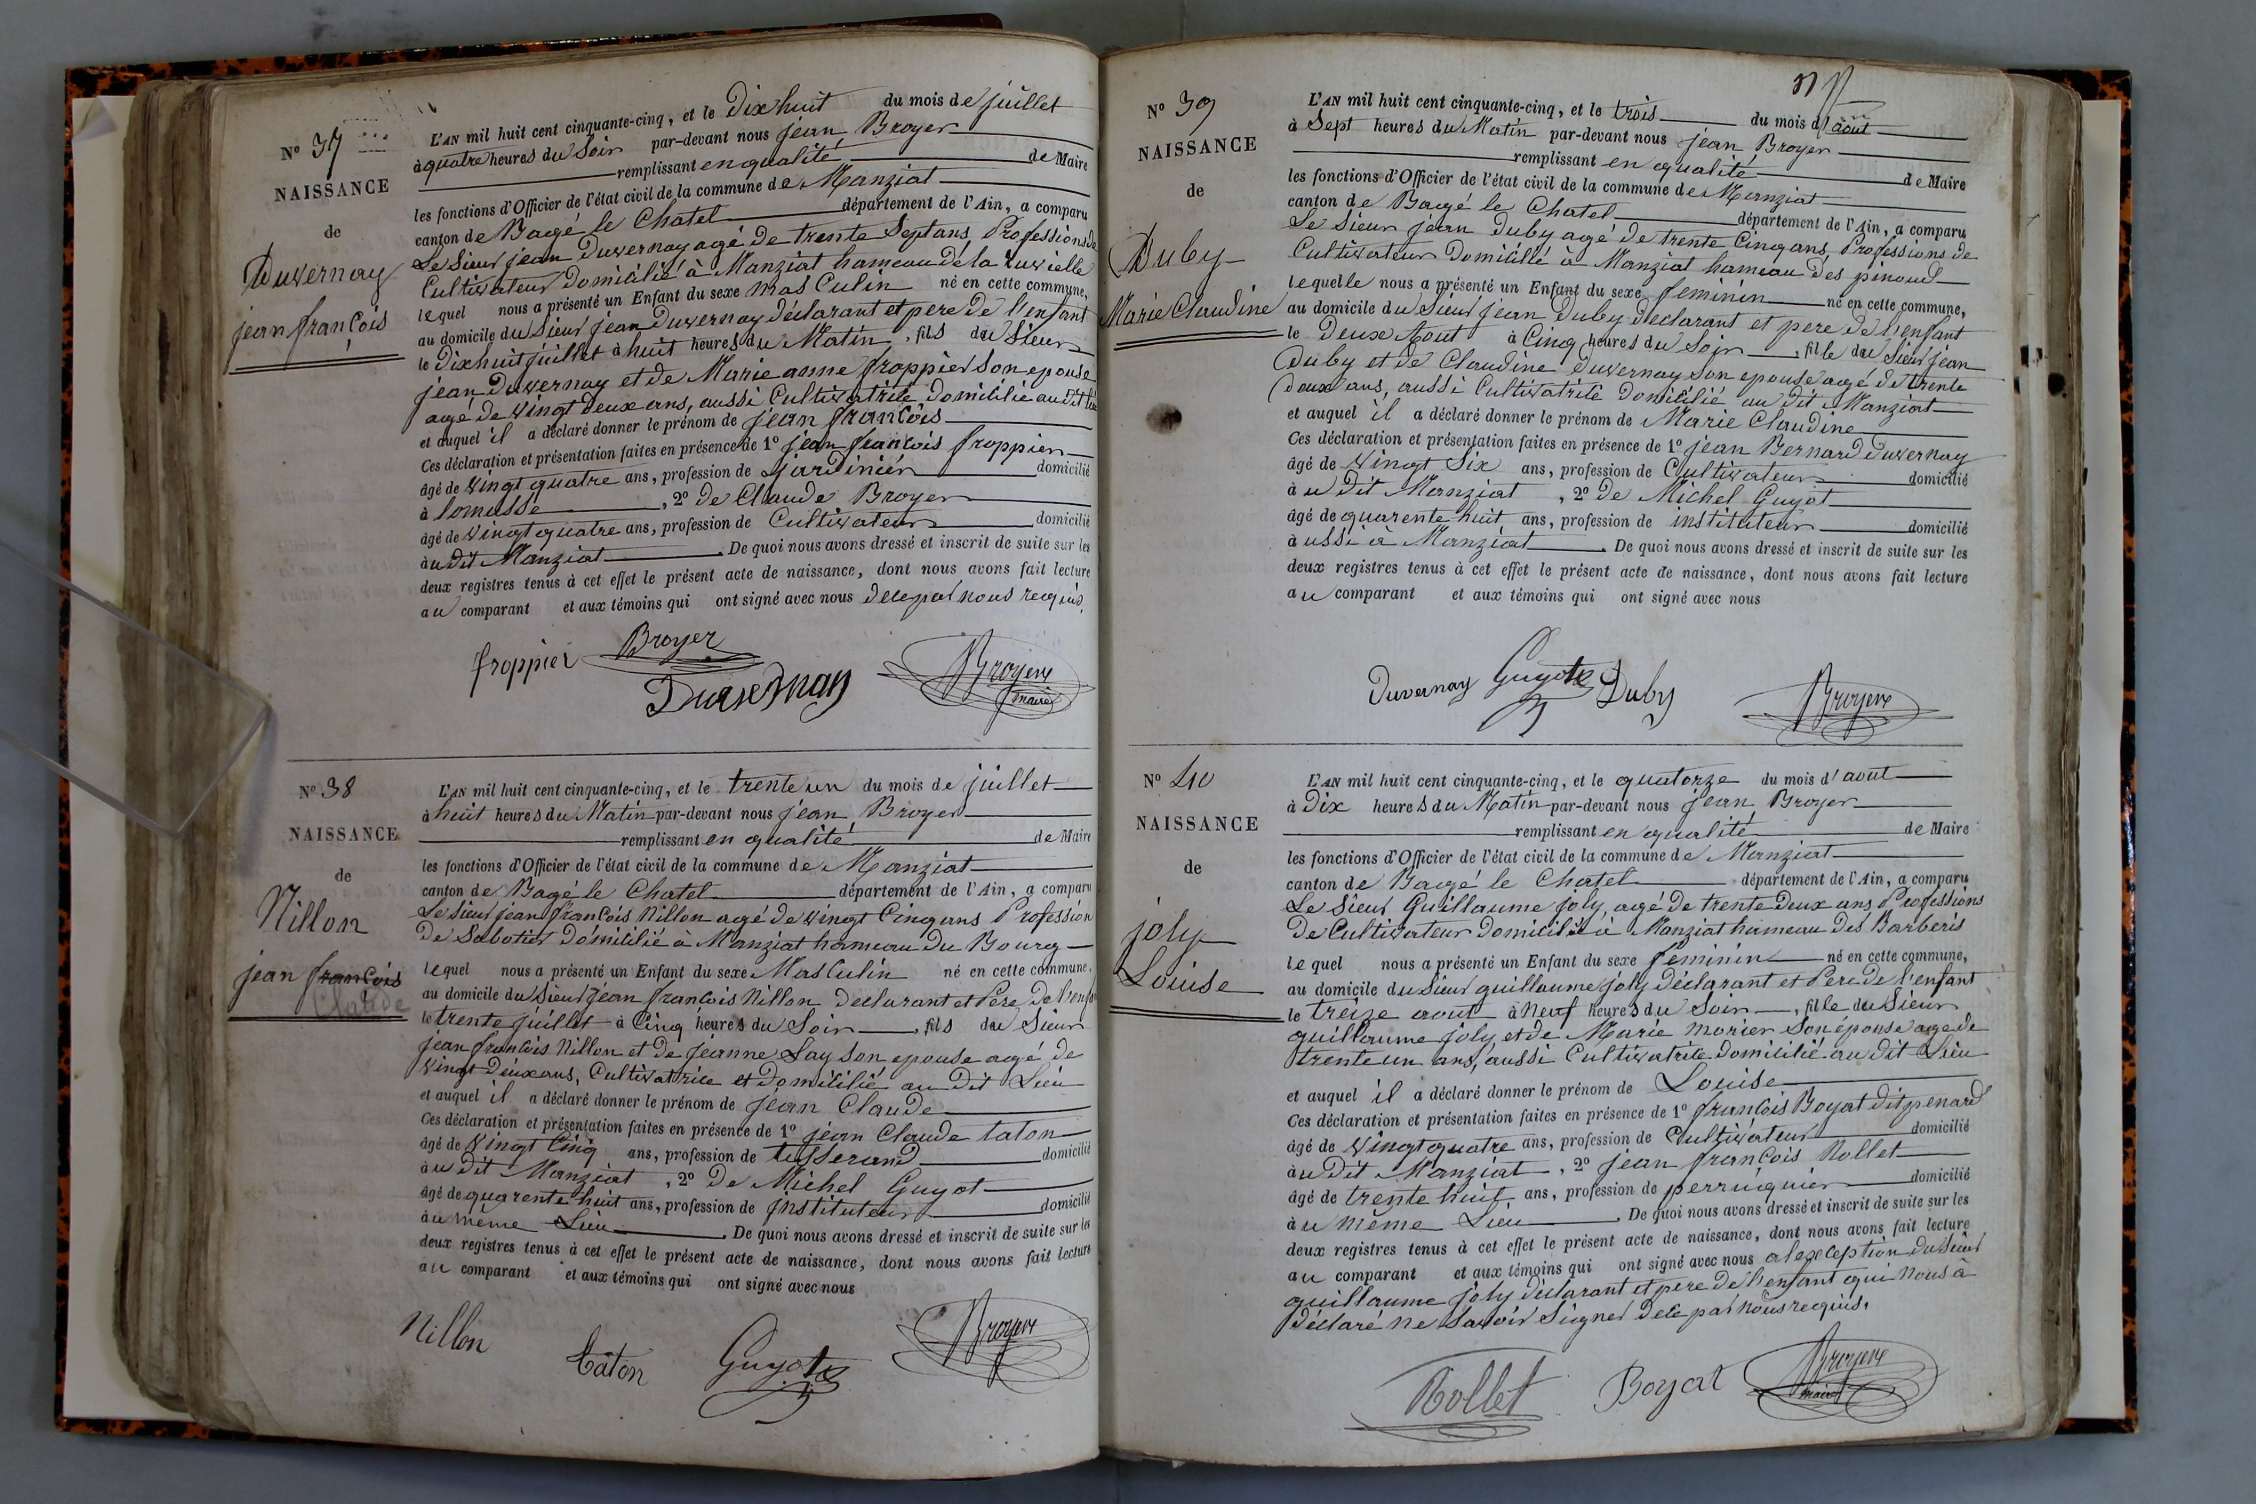 N° 37
NAISSANCE
de
Duvernay
jean françois
L'AN mil huit cent cinquante-cinq, et le Dix huit du mois de juillet
à quatre heures du Soir par-devant nous jean Broyer
remplissant en qualité de Maire
les fonctions d'Officier de l'état civil de la commune de Manziat
canton de Bagé le Chatel département de l'Ain, a comparu
Le Sieur jean Duvernay agé de trente Sept ans, Professions de
Cultivateur Domicilié à Manziat hameau de la
lequel nous a présenté un Enfant du sexe mas Culin né en cette commune,
au domicile du Sieur jean Duvernay déclarant et pere de l'enfant
le Dix huit juillet à huit heures du Matin, fils du Sieur
jean Duvernay et de Marie anne froppier son epouse
agé de Vingt deux ans, aussi Cultivatrice Domicilié au dit lieu
et auquel il a déclaré donner le prénom de jean françois
Ces déclaration et présentation faites en présence de 1° jean françois froppier
âgé de Vingt quatre ans, profession de jardinier domicilié
à , 2° de Claude Broyer
âgé de Vingt quatre ans, profession de Cultivateur domicilié
au dit Manziat. De quoi nous avons dressé et inscrit de suite sur les
deux registres tenus à cet effet le présent acte de naissance, dont nous avons fait lecture
au comparant et aux témoins qui ont signé avec nous de ce par nous requis.
froppier Broyer Duvernay Broyer maire
N° 38
NAISSANCE
de
Nillon
jean françois
Claude
L'AN mil huit cent cinquante-cinq, et le trente un du mois de juillet
à huit heures du Matin par-devant nous jean Broyer
remplissant en qualité de Maire
les fonctions d'Officier de l'état civil de la commune de Manziat
canton de Bagé le Chatel département de l'Ain, a comparu
Le Sieur jean françois Nillon agé de vingt Cinq ans Profession
De Sabotier Domicilié à Manziat hameau du Bourg
lequel nous a présenté un Enfant du sexe Mas Culin né en cette commune,
au domicile du Sieur jean françois Nillon declarant et Pere de l'enfant
le trente juillet à Cinq heures du Soir, fils du Sieur
jean françois Nillon et de jeanne Lay son epouse agé de
Vingt deux ans, Cultivatrice et domicilié au Dit Lieu
et auquel il a déclaré donner le prénom de jean Claude
Ces déclaration et présentation faites en présence de 1° jean Claude Caton
âgé de Vingt Cinq ans, profession de tisserand domicilié
au dit Manziat, 2° de Michel Guyot
âgé de quarente huit ans, profession de jnstituteur domicilié
au même Lieu. De quoi nous avons dressé et inscrit de suite sur les
deux registres tenus à cet effet le présent acte de naissance, dont nous avons fait lecture
au comparant et aux témoins qui ont signé avec nous
Nillon Câton Guyot Broyer
N° 39
NAISSANCE
de
Duby
Marie Claudine
L'AN mil huit cent cinquante-cinq, et le trois du mois d'août
à Sept heures du Matin par-devant nous jean Broyer
remplissant en qualité de Maire
les fonctions d'Officier de l'état civil de la commune de Manziat
canton de Bagé le Chatel département de l'Ain, a comparu
Le Sieur jean Duby agé de trente Cinq ans, Professions de
Cultivateur Domicilié à Manziat hameau des pinoud
lequelle nous a présenté un Enfant du sexe feminin né en cette commune,
au domicile du Sieur jean Duby declarant et pere de l'enfant
le Deux Aout à Cinq heures du Soir, fille du Sieur jean
Duby et de Claudine Duvernay son epouse agé de trente
Deux ans, aussi Cultivatrice Domicilié au dit Manziat
et auquel il a déclaré donner le prénom de Marie Claudine
Ces déclaration et présentation faites en présence de 1° jean Bernard Duvernay
âgé de Vingt Six ans, profession de Cultivateur domicilié
au Dit Manziat, 2° de Michel Guyot
âgé de quarente huit ans, profession de instituteur domicilié
à ussi à Manziat. De quoi nous avons dressé et inscrit de suite sur les
deux registres tenus à cet effet le présent acte de naissance, dont nous avons fait lecture
au comparant et aux témoins qui ont signé avec nous
Duvernay Guyot Duby Broyer
N° 40
NAISSANCE
de
joly
Louise
L'AN mil huit cent cinquante-cinq, et le quatorze du mois d'aout
à Dix heures du Matin par-devant nous jean Broyer
remplissant en qualité de Maire
les fonctions d'Officier de l'état civil de la commune de Manziat
canton de Bagé le Chatel département de l'Ain, a comparu
Le Sieur Guillaume joly, agé de trente deux ans Professions
De Cultivateur Domicilié à Manziat hameau Des Barberis
lequel nous a présenté un Enfant du sexe feminin né en cette commune,
au domicile du Sieur guillaume joly déclarant et Pere de l'enfant
le treize aout à Neuf heures du Soir, fille du Sieur
guillaume joly et de Marie morier Son épouse agé de
trente un ans, aussi Cultivatrice Domicilié au dit Lieu
et auquel il a déclaré donner le prénom de Louise
Ces déclaration et présentation faites en présence de 1° françois Boyat dit penard
âgé de Vingt quatre ans, profession de Cultivateur domicilié
au Dit Manziat, 2° jean françois Rollet
âgé de trente huit ans, profession de perruquier domicilié
au même Lieu. De quoi nous avons dressé et inscrit de suite sur les
deux registres tenus à cet effet le présent acte de naissance, dont nous avons fait lecture
au comparant et aux témoins qui ont signé avec nous a lexception du Sieur
guillaume joly déclarant et pere de l'enfant qui nous à
déclaré ne Savoir Signer de ce par nous requis.
Rollet Boyat Broyer maire